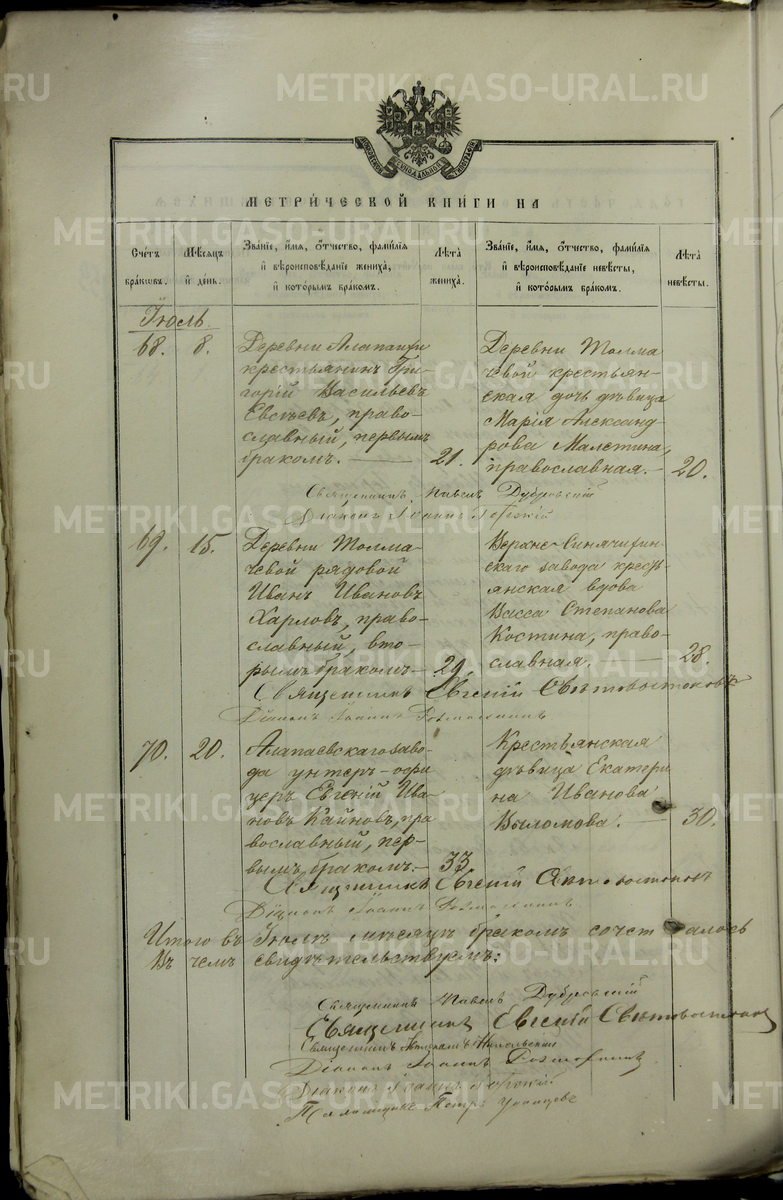 METRIKI.GASO-URAL.RU
МЕТРИ́ЧЕСКОЙ КНИ́ГИ НА
Сче́тъ бра́ковъ.
Мѣ́сяцъ и҆ де́нь.
Зва́нїе, и҆́мя, ѻ҆́тчество, фами́лїя и҆ вѣроисповѣ́данїе жениха̀, и҆ кото́рымъ бра́комъ.
Лѣ́та жениха̀.
Зва́нїе, и҆́мя, ѻ҆́тчество, фами́лїя и҆ вѣроисповѣ́данїе невѣ́сты, и҆ кото́рымъ бра́комъ.
Лѣ́та невѣ́сты.
Іюль.
68. 8.
Деревни Алапаихи
крестьянинъ Гри-
горій Васильевъ
Евсѣевъ, право-
славный, первымъ
бракомъ. — 21.
Деревни Толма
чевой крестьян-
ская дочь дѣвица
Марія Александ-
рова Малетина,
православная. — 20.
Священникъ Павелъ Дубровскій
Діаконъ Іоаннъ
69. 15.
Деревни Толма-
чевой рядовой
Иванъ Ивановъ
Харловъ, право-
славный, вто-
рымъ бракомъ — 29.
Верхне-Синячихин-
скаго завода кресть-
янская вдова
Васса Степанова
Костина, право-
славная. — 28.
Священникъ Евгеній Свѣтовостоковъ
Діаконъ Іоаннъ
70. 20.
Алапаевскаго заво-
да унтеръ-офи-
церъ Евгеній Ива
новъ Каиновъ, пра
вославный, пер-
вымъ бракомъ. — 33
Крестьянская
дѣвица Екатери
на Иванова
— 30.
Священникъ Евгеній Свѣтовостоковъ
Діаконъ Іоаннъ
Итого въ Іюлѣ мѣсяцѣ бракомъ сочеталось
Въ чемъ свидѣтельствуемъ:
Священникъ Павелъ Дубровскій
Священникъ Евгеній Свѣтовостоковъ
Священникъ Никольскій
Діаконъ Іоаннъ
Діаконъ Іоаннъ
Псаломщикъ Петръ